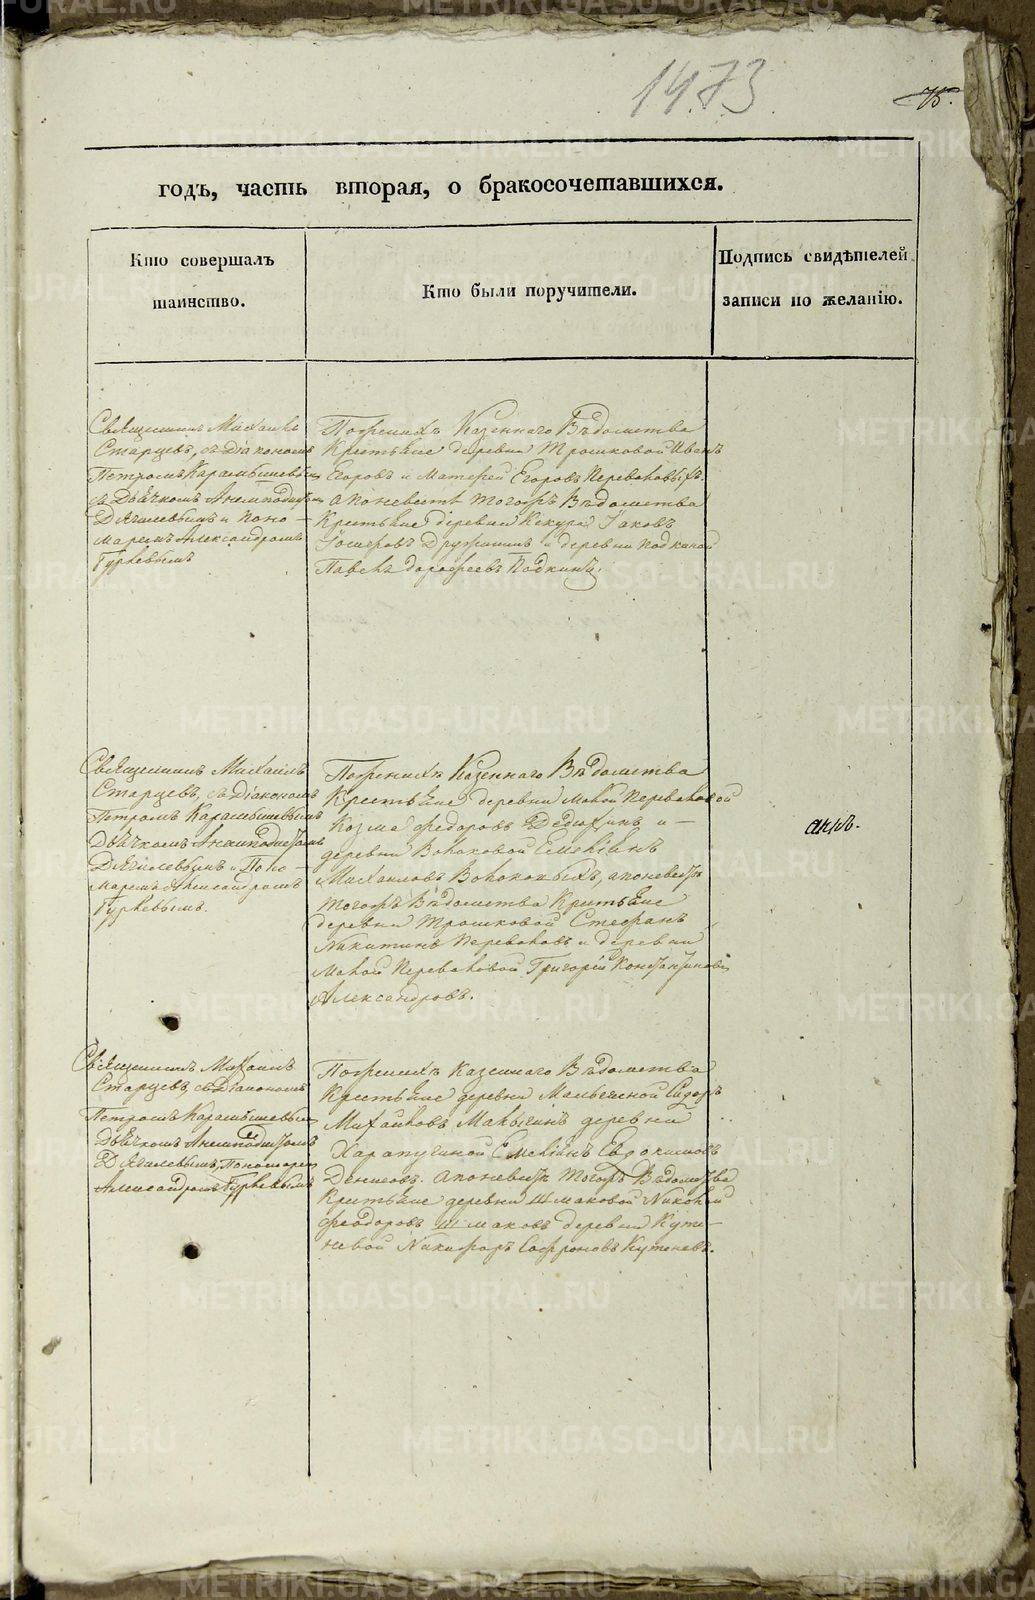 1473
75.
годъ, часть вторая, о бракосочетавшихся.
Кто совершалъ
таинство.
Кто были поручители.
Подпись свидѣтелей
записи по желанію.
Священникъ Михаилъ
Старцевъ, съ Діакономъ
Петромъ Карамышевымъ
Дьячкомъ
Дягилевымъ и Поно-
маремъ Александромъ
Гурьевымъ
По женихѣ Казеннаго Вѣдомства
Крестьяне деревни Трошковой Иванъ
Егоровъ и Матѳей Егоровъ Переваловыхъ.
а по невестѣ тогожъ Вѣдомства
Крестьяне деревни Кекура Іаковъ
Дружининъ и деревни Подкиной
Павелъ Дороѳеевъ Подкинъ.
Священникъ Михаилъ
Старцевъ, съ Діакономъ
Петромъ Карамышевымъ
Дьячкомъ
Дягилевымъ и Поно-
маремъ Александромъ
Гурьевымъ.
По женихѣ Казеннаго Вѣдомства
Крестьяне деревни Малой Переваловой
Козма Ѳедоровъ и
деревни Волоковой Емеліянъ
Михаиловъ Волоковыхъ, а по невестѣ
тогожъ Вѣдомства Крестьяне
деревни Трошковой Стефанъ
Никитинъ Переваловъ и деревни
Малой Переваловой Григорій Константиновъ
Александровъ.
Священникъ Михаилъ
Старцевъ, съ Діакономъ
Петромъ Карамышевымъ
Дьячкомъ
Дягилевымъ, Пономаремъ
Александромъ Гурьевымъ
По женихѣ Казеннаго Вѣдомства
Крестьяне деревни Сидоръ
Михаиловъ деревни
Емеліянъ Евдокимовъ
Денисовъ. а по невестѣ тогожъ Вѣдомства
Крестьяне деревни Шмаковой Николай
Ѳеодоровъ Шмаковъ деревни Куте-
невой Никифоръ Софроновъ Кутеневъ.
METRIKI.GASO-URAL.RU